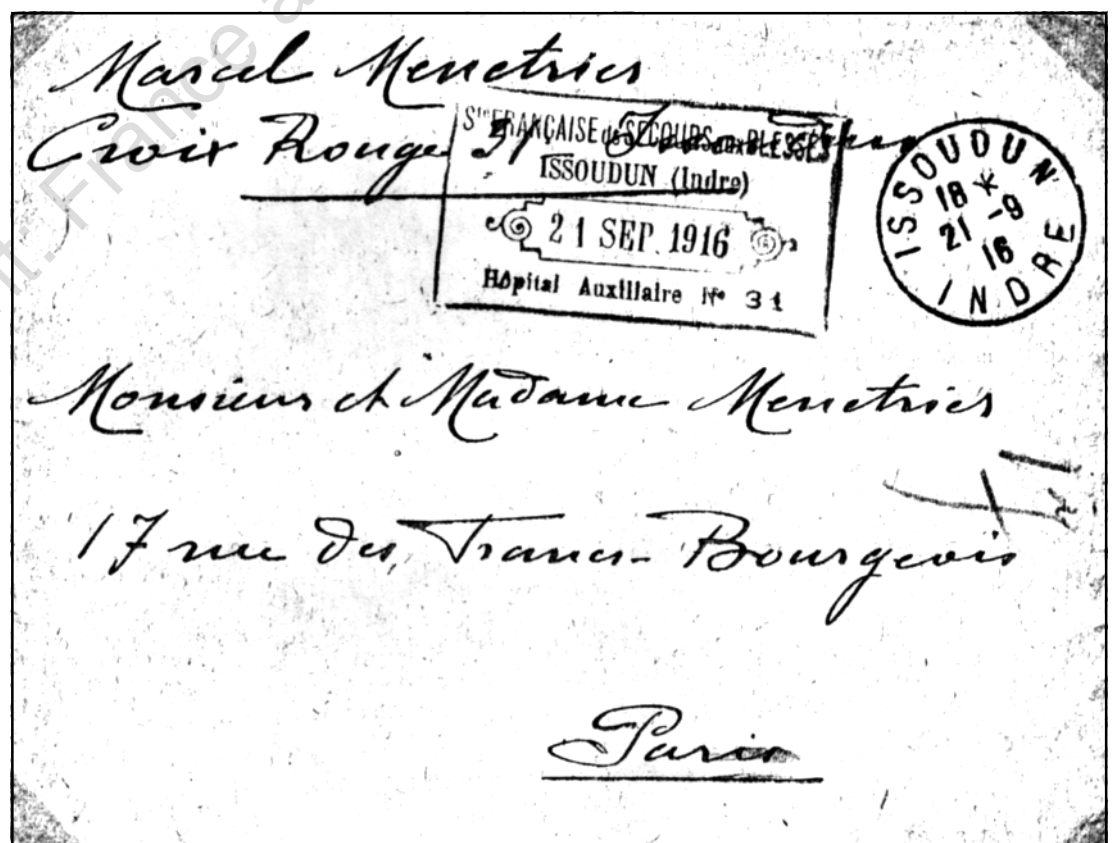 Marcel Menetrier
Croix Rouge 31 Issoudun
Sté FRANÇAISE de SECOURS aux BLESSÉS
ISSOUDUN (Indre)
21 SEP. 1916
Hôpital Auxiliaire Nº 31
ISSOUDUN
18 *
21 -9
16
INDRE
Monsieur et Madame Menetrier
17 rue des Francs-Bourgeois
Paris
France